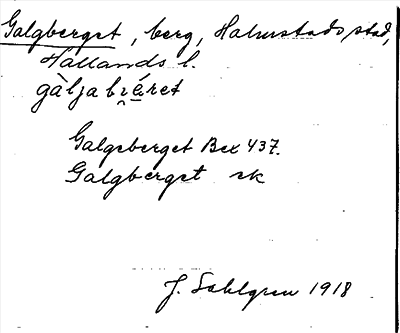 Galgberget, berg, Halmstads stad,
Hallands l.
gàljabrǽret
Galgeberget Bex 437.
Galgberget ek
J. Sahlgren 1918